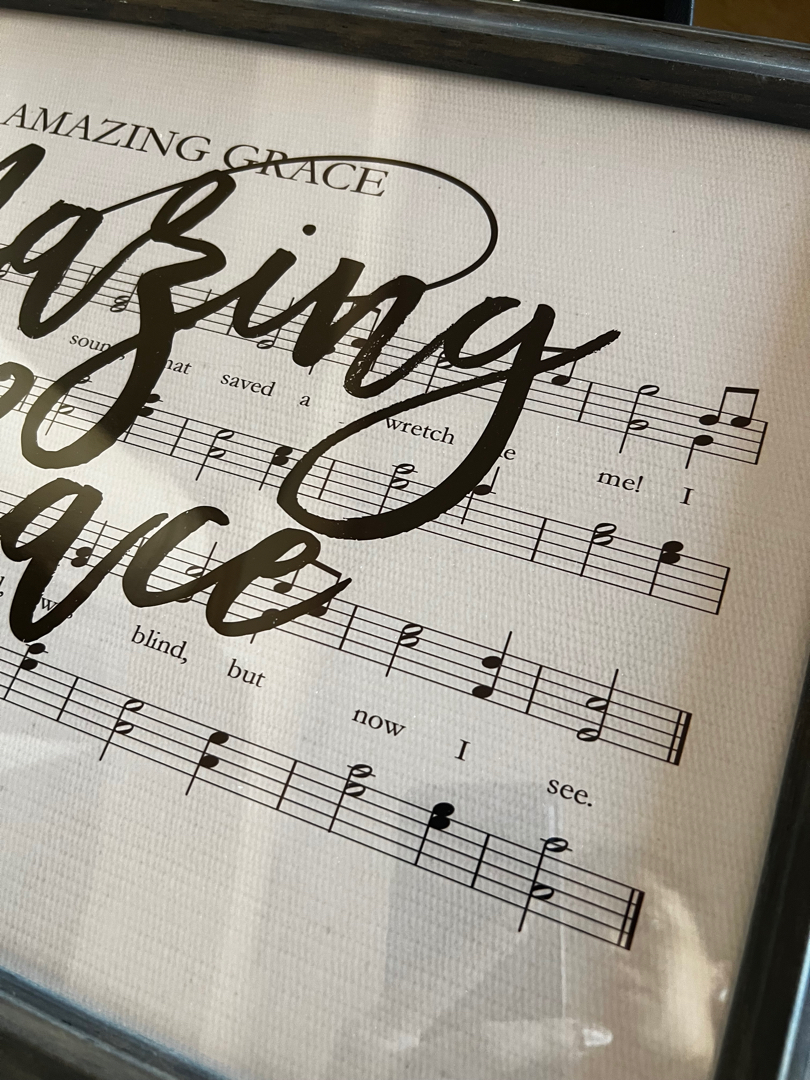 AMAZING GRACE
azing
ace
saved a wretch me! I
blind, but now I see.